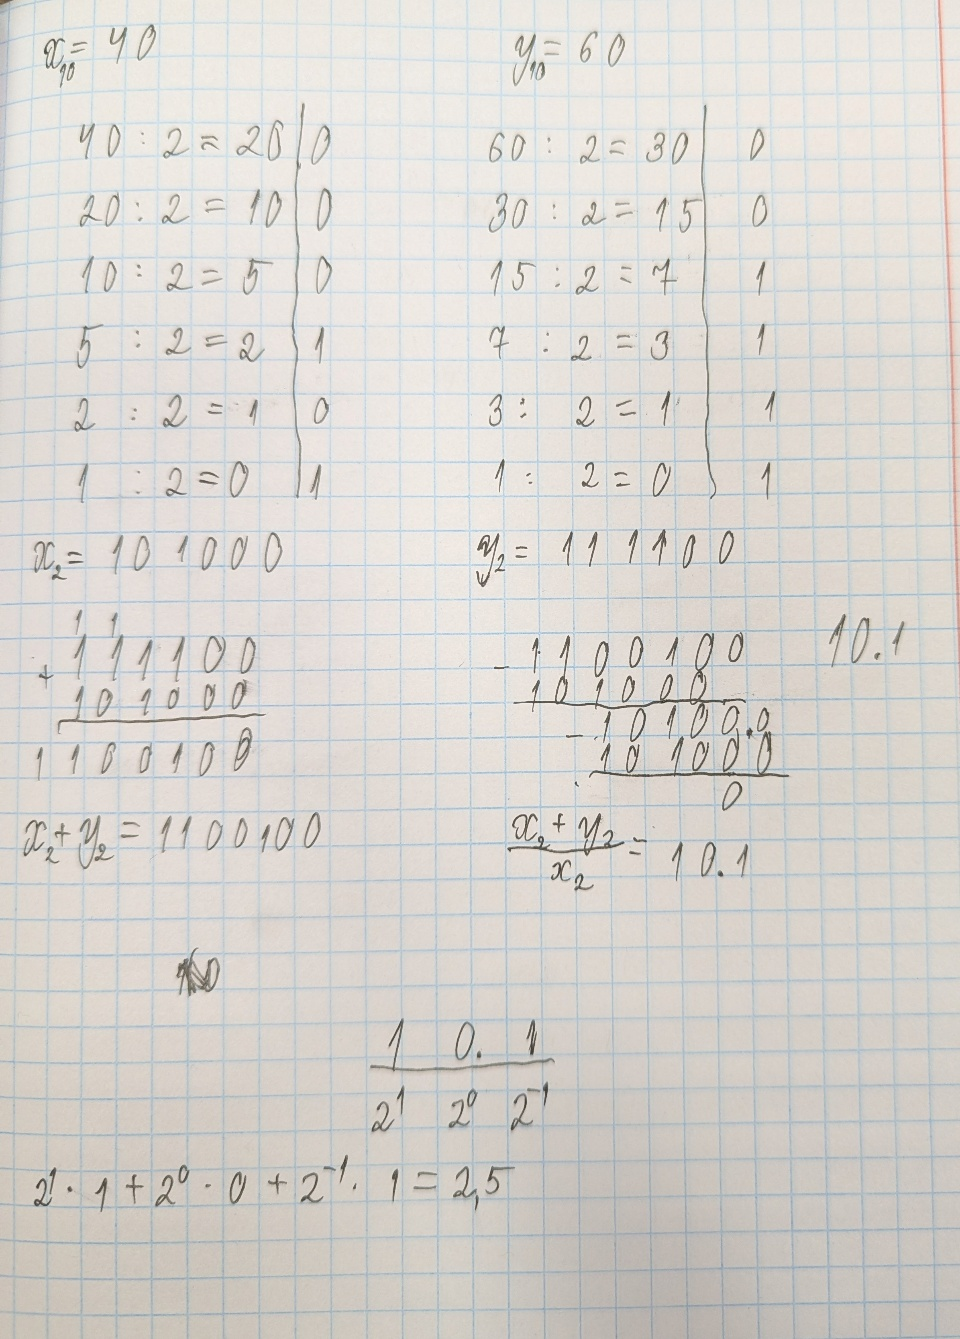 x₁₀ = 40
y₁₀ = 60
40 : 2 = 20 | 0
20 : 2 = 10 | 0
10 : 2 = 5 | 0
5 : 2 = 2 | 1
2 : 2 = 1 | 0
1 : 2 = 0 | 1
60 : 2 = 30 | 0
30 : 2 = 15 | 0
15 : 2 = 7 | 1
7 : 2 = 3 | 1
3 : 2 = 1 | 1
1 : 2 = 0 | 1
x₂ = 101000
y₂ = 111100
1 1
+ 111100
101000
1100100
x₂ + y₂ = 1100100
- 1100100
10.1
101000
- 10100.0
101000
0
x₂ + y₂
x₂
= 10.1
1 0. 1
2¹ 2⁰ 2⁻¹
2¹ · 1 + 2⁰ · 0 + 2⁻¹ · 1 = 2,5